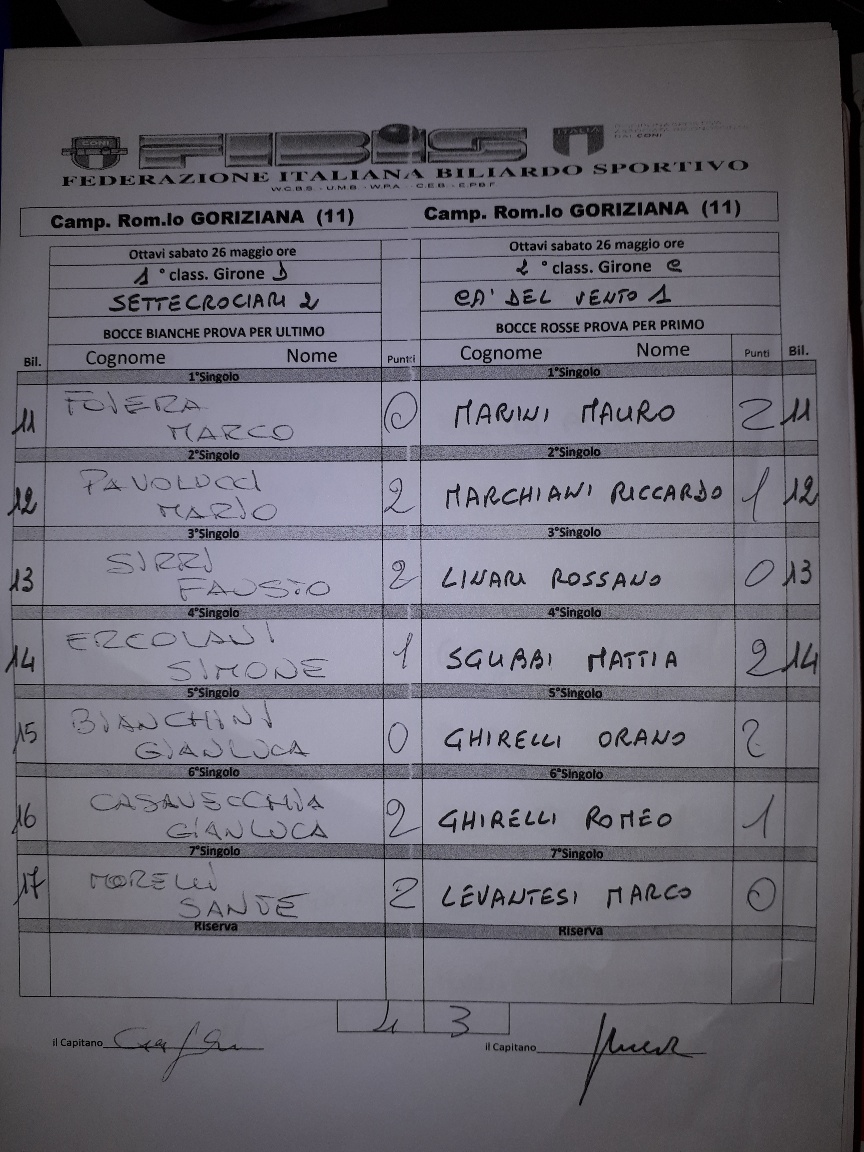 CONI
FIBIS
ITALIA
FEDERAZIONE ITALIANA BILIARDO SPORTIVO
W.C.B.S. - U.M.B. - W.P.A. - C.E.B. - E.P.B.F
Camp. Rom.lo GORIZIANA (11) Camp. Rom.lo GORIZIANA (11)
Ottavi sabato 26 maggio ore Ottavi sabato 26 maggio ore
1 ° class. Girone D 2 ° class. Girone C
SETTECROCIARI 2 CA' DEL VENTO 1
BOCCE BIANCHE PROVA PER ULTIMO BOCCE ROSSE PROVA PER PRIMO
Bil. Cognome Nome Punti Cognome Nome Punti Bil.
1°Singolo 1°Singolo
11 FOIERA MARCO 0 MARINI MAURO 2 11
2°Singolo 2°Singolo
12 PAVOLUCCI MARIO 2 MARCHIANI RICCARDO 1 12
3°Singolo 3°Singolo
13 SIRRI FAUSTO 2 LINARI ROSSANO 0 13
4°Singolo 4°Singolo
14 ERCOLANI SIMONE 1 SGUBBI MATTIA 2 14
5°Singolo 5°Singolo
15 BIANCHINI GIANLUCA 0 GHIRELLI ORANO 2
6°Singolo 6°Singolo
16 CASAVECCHIA GIANLUCA 2 GHIRELLI ROMEO 1
7°Singolo 7°Singolo
17 MORELLI SANTE 2 LEVANTESI MARCO 0
Riserva Riserva
4 3
il Capitano il Capitano